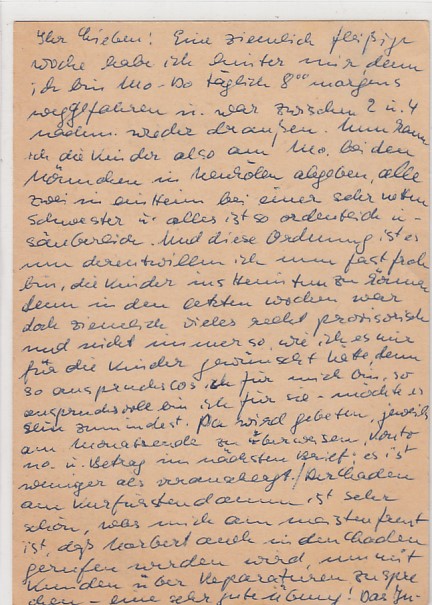 Ihr Lieben! Eine ziemlich fleißige
Woche habe ich hinter mir, denn
ich bin Mo-Do täglich 8⁰⁰ morgens
weggefahren u. war zwischen 2 u. 4
nachm. wieder draußen. Nun kann
ich die Kinder also am Mo. bei den
in Neukölln abgeben, alle
zwei in ein Heim bei einer sehr netten
Schwester u. alles ist so ordentlich u.
säuberlich. Und diese Ordnung ist es
um derentwillen ich nun fast froh
bin, die Kinder ins Heim tun zu können
denn in den letzten Wochen war
doch ziemlich vieles recht provisorisch
und nicht immer so, wie ich es mir
für die Kinder gewünscht hätte, denn
so anspruchslos ich für mich bin, so
anspruchsvoll bin ich für sie - möchte es
sein zumindest. Pa wird gebeten, jeweils
am Monatsende zu überweisen, Konto
no. u. Betrag im nächsten Brief; es ist
weniger als veranschlagt. / Der Laden
am Kurfürstendamm ist sehr
schön, was mich am meisten freut
ist, daß Norbert auch in den Laden
gerufen werden wird, um mit
Kunden über Reparaturen zu spre
chen - eine sehr gute Übung! Das In-